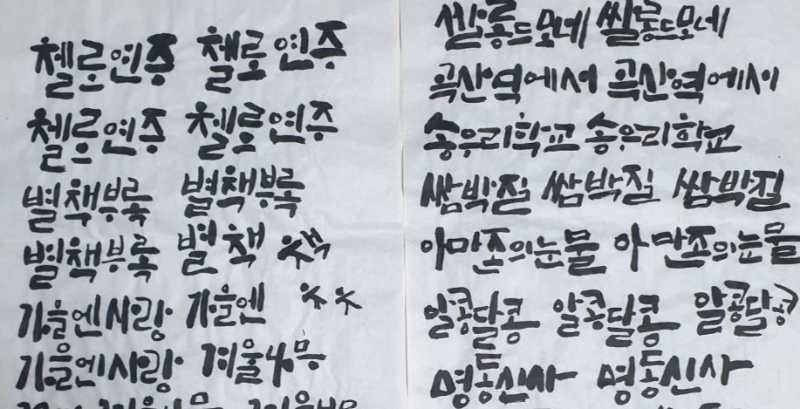 첼로연주 첼로연주
첼로연주 첼로연주
별책부록 별책부록
별책부록 별책 책
가을엔사랑 가을엔 ㅊㅊ
가을엔사랑 겨울나무
쌀롱드모네 쌀롱드모네
곡산역에서 곡산역에서
송우리학교 송우리학교
쌈박질 쌈박질 쌈박질
아마존의눈물 아마존의눈물
알콩달콩 알콩달콩 알콩달콩
명동신사 명동신사